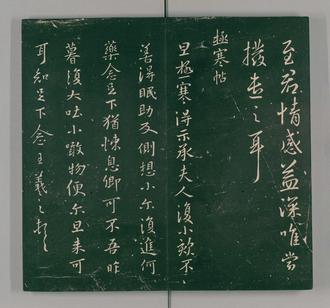 至君情感益深唯當
撥遣之耳
極寒帖
旦極寒得示承夫人復小欬不
善得眠助反側想小尔復進何
藥念足下猶悚息卿可不吾昨
暮復大吐小噉物便尔旦来可
耳知足下念王羲之頓首